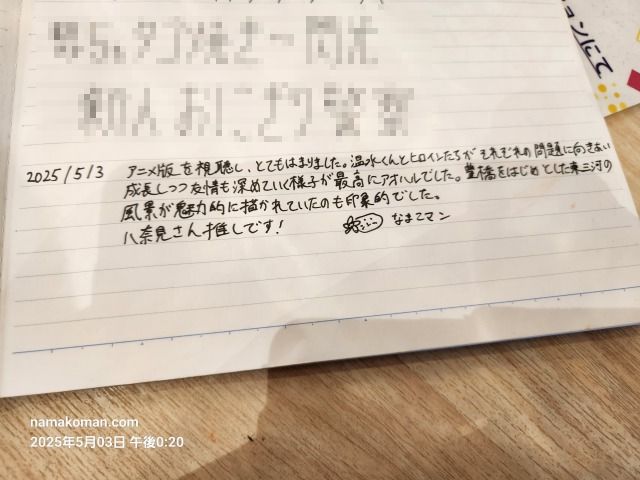 ョンにて
2025/5/3 アニメ版を視聴し、とてもはまりました。温水くんとヒロインたちがそれぞれの問題に向き合い
成長しつつ友情も深めていく様子が最高にアオハルでした。豊橋をはじめとした東三河の
風景が魅力的に描かれていたのも印象的でした。
八奈見さん推しです! なまこマン
namakoman.com
2025年5月03日 午後0:20